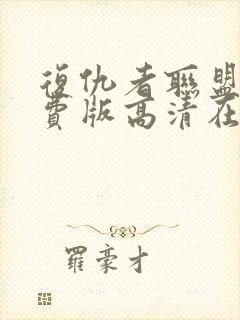 復仇者聯盟
費版高清在
羅豪才